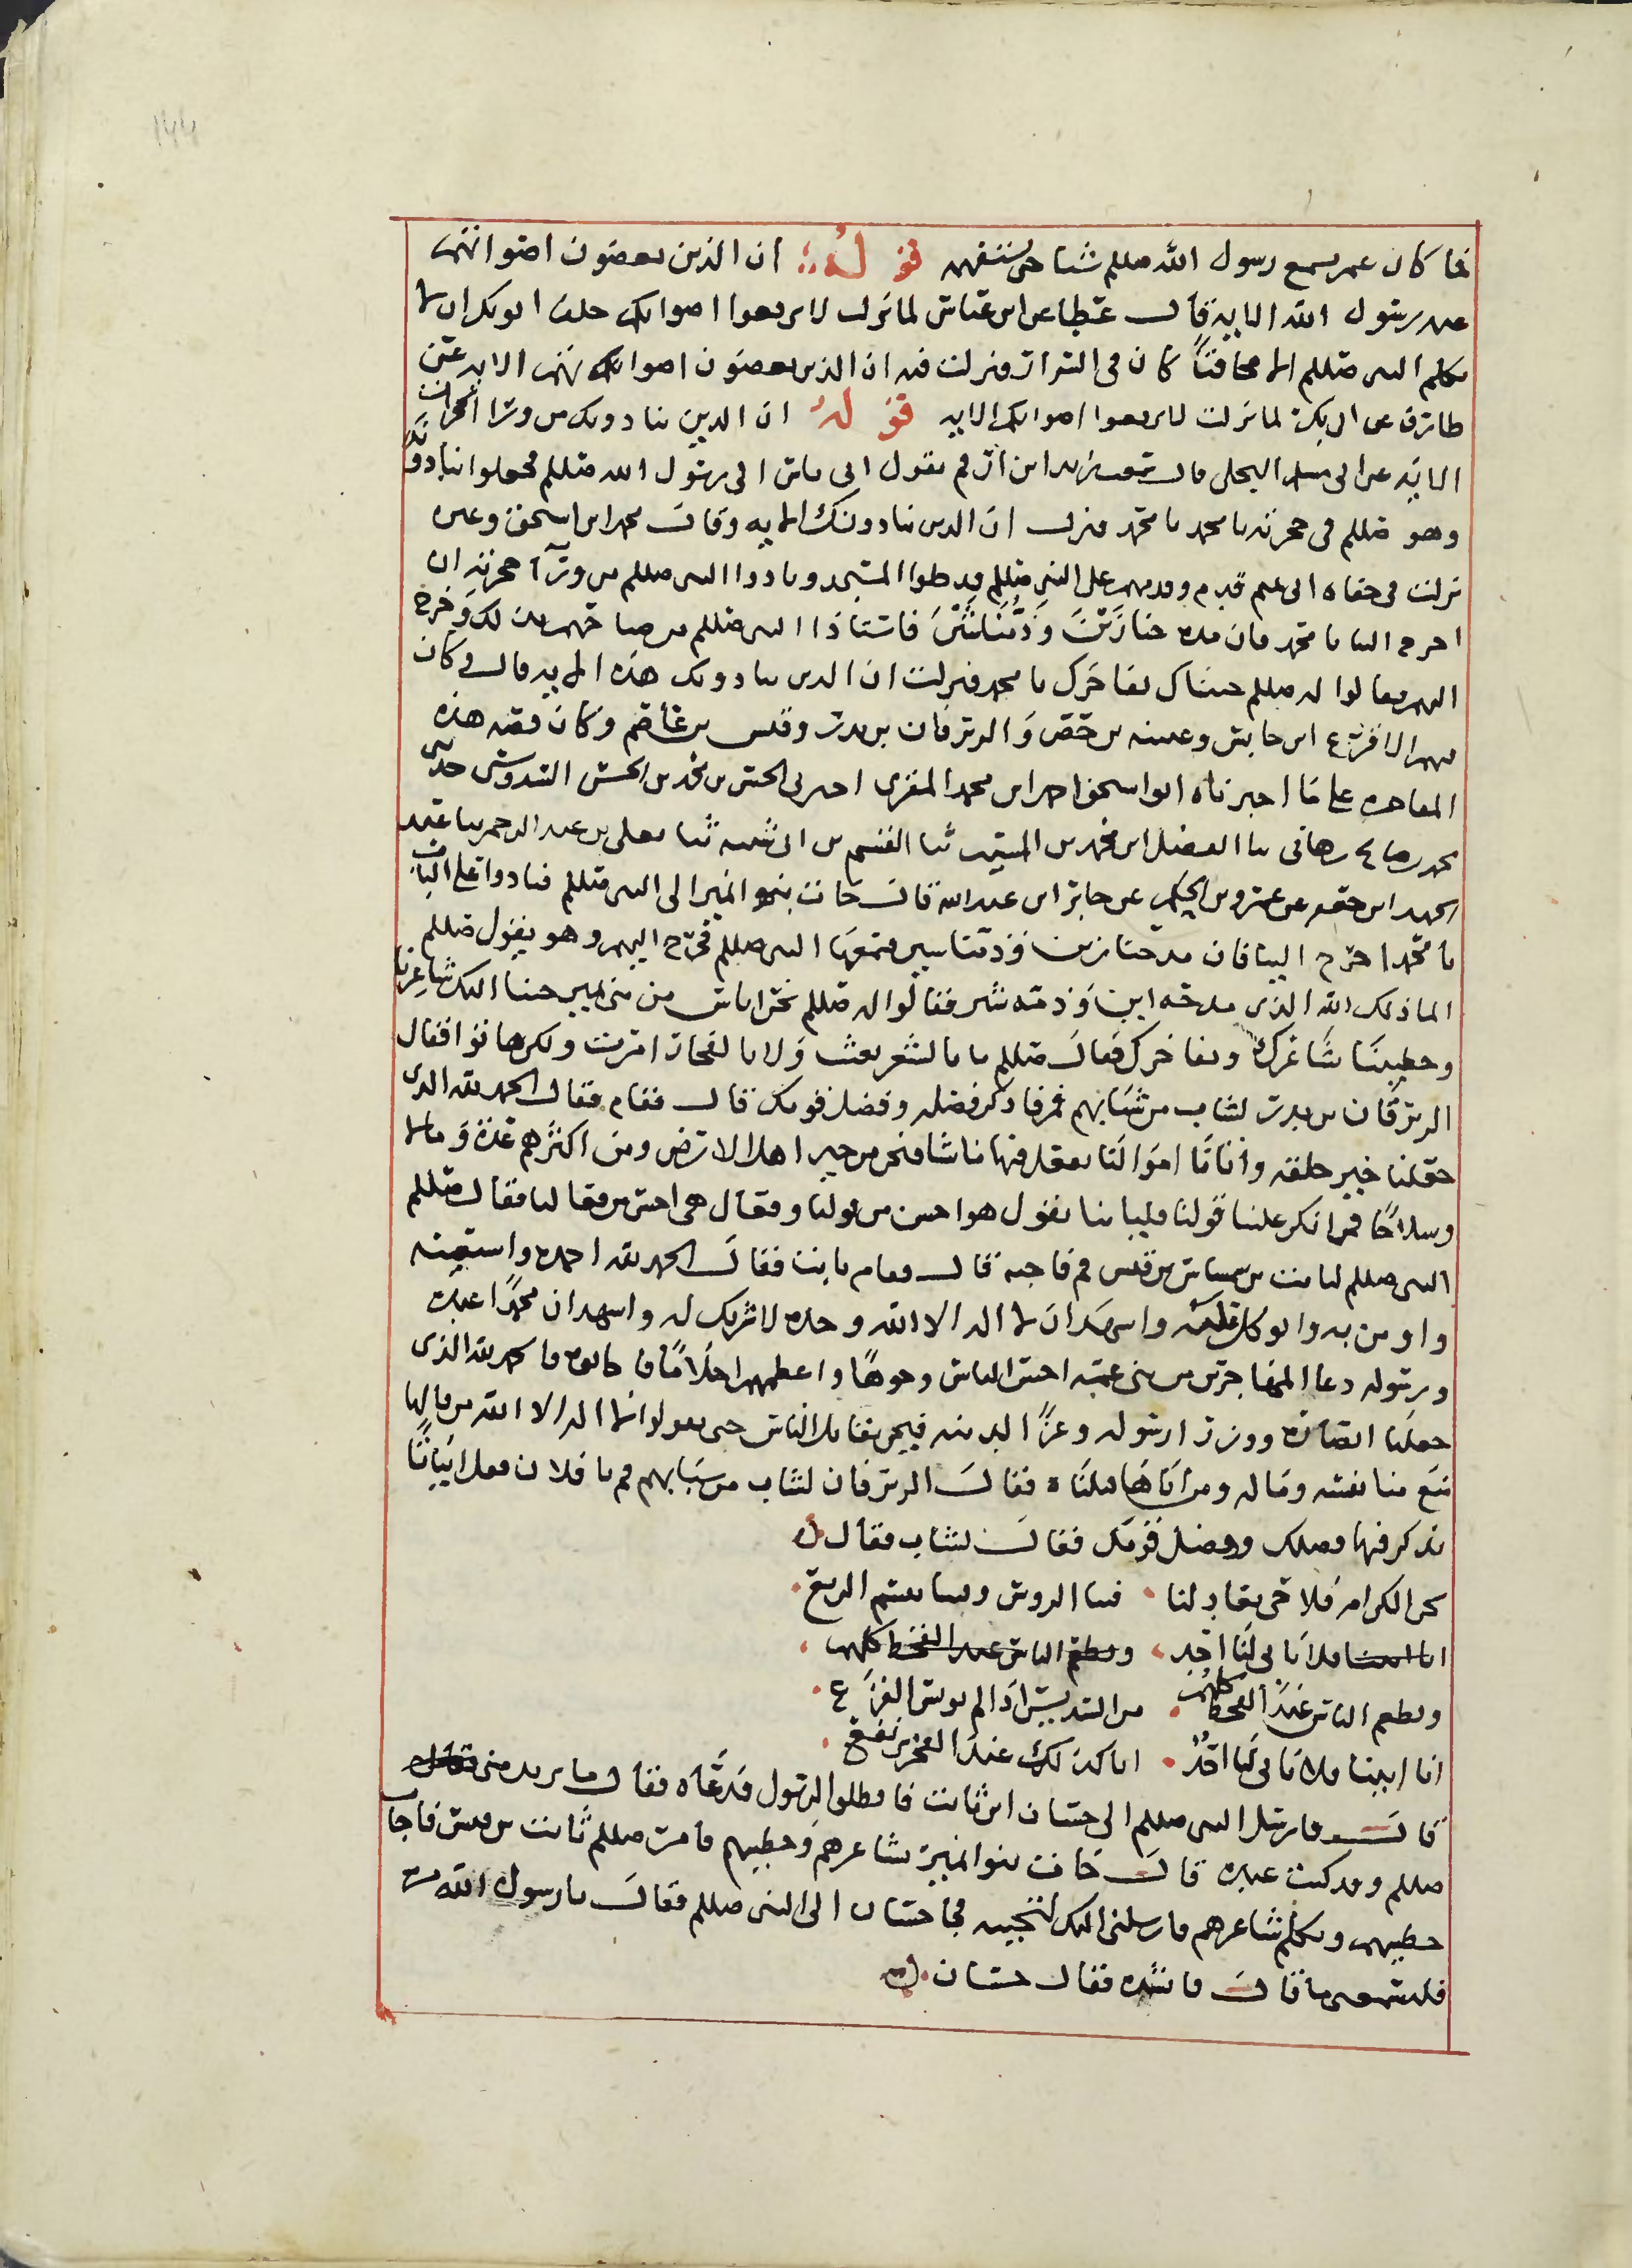 فما كان عمر يسمع رسول الله صللم شيا حتى يستفهمه قوله ان الذين يغضون اصواتهم
عند رسول الله الايه قال عطا عن ابن عباس لما نزلت لا ترفعوا اصواتكم حلف ابو بكر ان لا
يكلم النبي صللم الا مخافتاً كان في السرار فنزلت فيه ان الذين يغضون اصواتهم الايه عن
طارق عن ابي بكر لما نزلت لا ترفعوا اصواتكم الايه قوله ان الدين ينادونك من ورا الحجرات
الايه عن ابي مسلم البجلي قال سمعت زيد ابن ارقم يقول اتى ناس الى رسول الله صللم فجعلوا ينادونه
وهو صللم في حجرته يا محمد يا محمد فنزلت ان الدين ينادونك الايه وقال محمد ابن اسحق وغيره
نزلت في جفاه بني تميم قدم وفدهم على النبي صللم فدخلوا المسجد ونادوا النبي صللم من ورآ حجرته ان
اخرج الينا يا محمد فان مدحنا زَيْنٌ وذمنا شَيْنٌ فاستاذا النبي صللم من صياحهم بذلك وخرج
اليهم فقالوا له صللم جيناك نفاخرك يا محمد فنزلت ان الدين ينادونك هذه الايه قال وكان
فيهم الاقرع ابن حابس وعيينه بن حصن والزبرقان بن بدر وقيس بن عاصم وكان قصه هذه
المفاخره على ما اخبرناه ابو اسحق احمد ابن محمد المقري اخبرني الحسن بن محمد بن الحسن السدوسي حدثني
محمد بن صالح بن هاني نا الفضل ابن محمد بن المسيب ثنا القسم بن ابي شيبه ثنا معلى بن عبد الرحمن نا عبد
الحميد ابن جعفر عن عمرو بن الحكم عن جابر ابن عبد الله قال جات بنوا تميم الى النبي صللم فنادوا على الباب
يا محمد اخرج الينا فان مدحنا زين وذمنا شين فسمعها النبي صللم فخرج اليهم وهو يقول صللم
انما ذلك الله الذي مدحه زين وذمه شين فقالوا له صللم نحن اناس من بني تميم جينا اليك شاعرنا
وخطيبنا نشاعرك ونفاخرك فقال صللم ما بالشعر بعثت ولا بالفخار امرت ولكن هاتوا فقال
الزبرقان بن بدر لشاب من شبابهم قم فاذكر فضلك وفضل قومك قال فقام فقال الحمد لله الذي
جعلنا خير خلقه واتانا اموالنا نفعل فيها ما نشا فنحن من خير اهل الارض ومن اكثرهم عدة ومالا
وسلاحًا فمن انكر علينا قولنا فلياتنا بقول هو احسن من قولنا وفعال هي احسن من فعالنا فقال صللم
النبي صللم لثابت بن شماس بن قيس قم فاجبه قال فقام ثابت فقال الحمد لله احمده واستعينه
واومن به واتوكل عليه واشهد ان لا اله الا الله وحده لا شريك له واشهد ان محمدًا عبده
ورسوله دعا المهاجرين من بني عمه احسن الناس وجوهًا واعظمهم احلامًا فاجابوه فالحمد لله الذي
جعلنا انصاره ووزرا رسوله وعزًا لدينه فنحن نقاتل الناس حتى يقولوا لا اله الا الله من قالها
منع منا نفسه وماله ومن اباها قتلناه فقال الزبرقان لشاب من شبابهم قم يا فلان فقل ابياتًا
تذكر فيها فضلك وفضل قومك فقال لشاب فقال
نحن الكرام فلا حي يعادلنا فينا الروس وفينا يقسم الربع
انا ابينا فلا يابى لنا احد ونطعم الناس عند القحط كلهم
ونطعم الناس عند القحط كلهم من السديف اذا لم يونس القزع
انا ابينا فلا يابى لنا احدٌ انا كذلك عند الفخر نرتفع
قال فارسل النبي صللم الى حسان ابن ثابت فانطلق الرسول فدعاه فقال ما يريد مني
صللم وقد كنت عنده قال جات بنوا تميم بشاعرهم وخطيبهم فامر صللم ثابت بن قيس فاجاب
خطيبهم وتكلم شاعرهم فارسلني اليك لتجيبه فجا حسان الى النبي صللم فقال يا رسول الله
فليسمعني ما قال فانشده فقال حسان